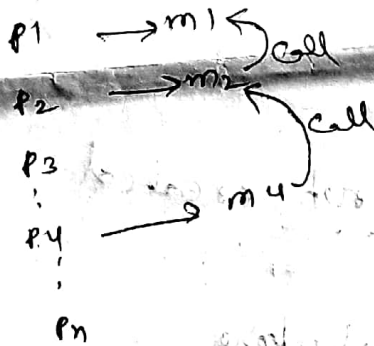 P1 → m1
Call
P2 → m2
Call
P3
P4 → m4
Pn